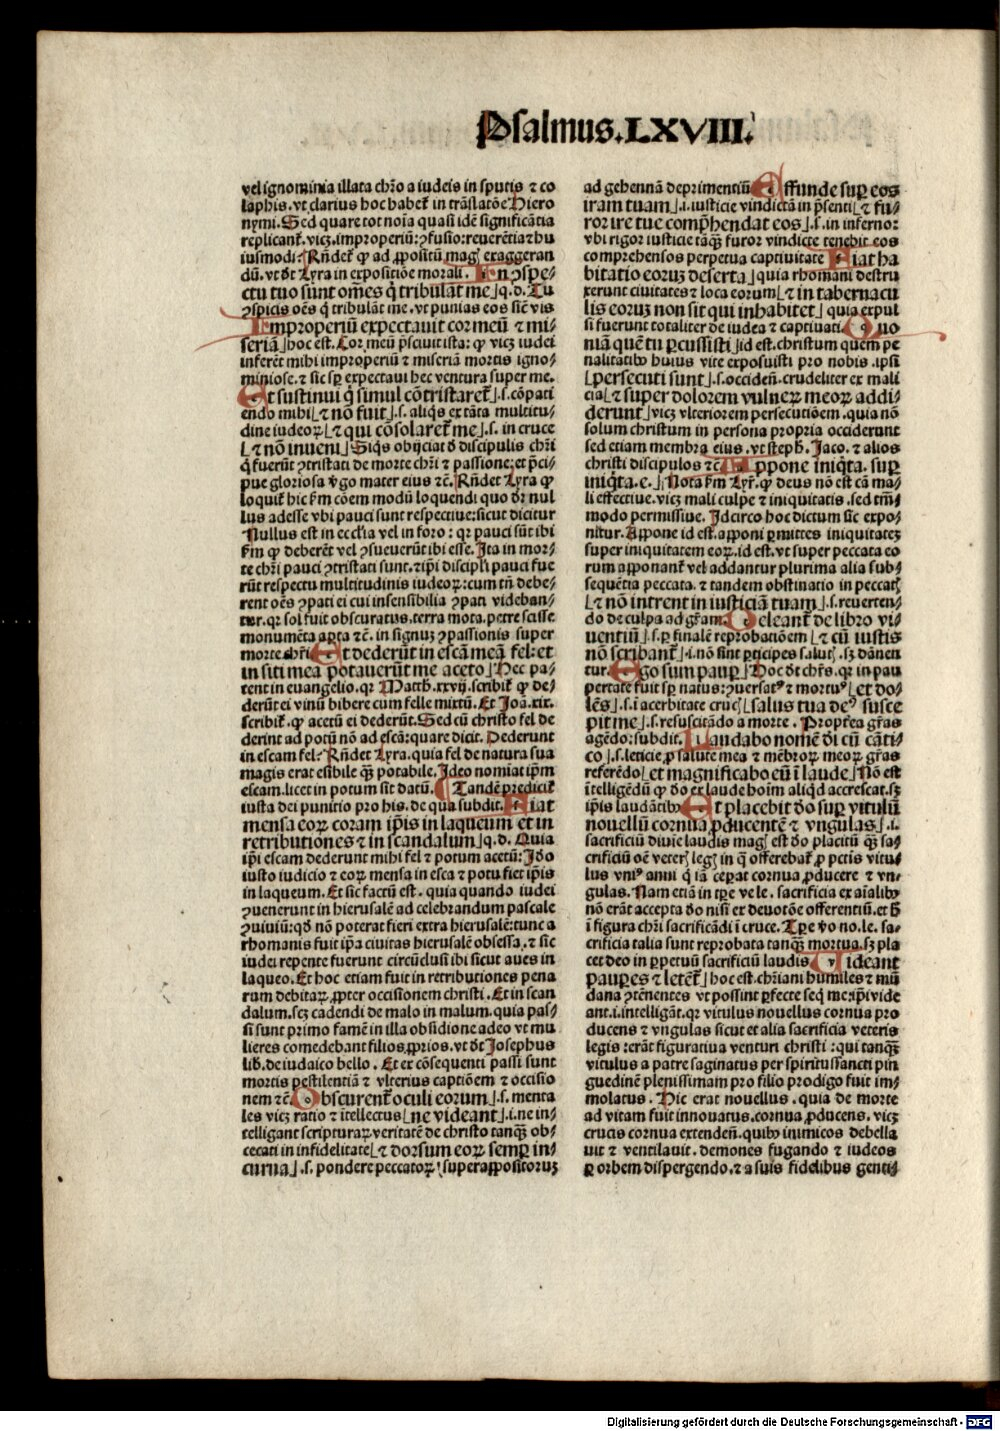 Psalmus.LXVIII.
vel ignominia illata chro a iudeis in sputis ⁊ co
laphis. vt clarius hoc habet̄ in trāslatōe Hiero
nymi. Sed quare tot noīa quasi idē significātia
replicant̄. vicꝫ. improperiū: ꝯfusio: reuerētia ⁊ hu
iusmodi? Rn̄det̄ ꝙ ad ꝓpositū magꝭ exaggeran
dū. vt dt Lyra in expositiōe morali. In ꝯspe⸗
ctu tuo sunt om̄es q̄ tribulāt me⌋ q.d. Tu
ꝯspicis oēs q̄ tribulāt me. vt punias eos sic̄ vis
Improperiū expectauit cor meū ⁊ mi⸗
seriā⌋ hoc est. Cor meū p̄sciuit ista: ꝙ vicꝫ iudei
inferēt mihi improperiū ⁊ miseriā mortis igno⸗
miniose. ⁊ sic sꝑ expectaui hec ventura super me.
Et sustinui q̄ simul cōtristaret̄⌋ .s. cōpati
endo mihi ⌊⁊ nō fuit⌋ .s. aliq̄s ex tāta multitu⸗
dine iudeoꝝ ⌊⁊ qui cōsolaret̄ me⌋ .s. in cruce
⌊⁊ nō inueni⌋ Siq̄s obijciat d̄ discipulis chr̄i
q̄ fuerūt ꝯtristati de morte chr̄i ⁊ passione: et p̄ci⸗
pue gloriosa v̄go mater eius ⁊c̄. Rn̄det Lyra ꝙ
loquit̄ hic ẜm cōem modū loquendi quo dr̄ nul
lus adesse vbi pauci sunt respectiue: sicut dicitur
Nullus est in ecclīa vel in foro: qr pauci sūt ibi
ẜm ꝙ deberēt vel ꝯsueuerūt ibi esse. Ita in mor⸗
te chr̄i pauci ꝯtristati sunt. ⁊ ip̄i discipl̄i pauci fue
rūt respectu multitudinis iudeoꝝ: cum tn̄ debe⸗
rent oēs ꝯpati ei cui insensibilia ꝯpati videban⸗
tur. qr sol fuit obscuratus. terra mota. petre scisse
monumēta aꝑta ⁊c̄. in signuꝫ ꝯpassionis super
morte chr̄i. Et dederūt in escā meā fel: et
in siti mea potauerūt me aceto⌋ Hec pa⸗
tent in euangelio. qr Matth. xxvij. scribit̄ ꝙ de⸗
derūt ei vinū bibere cum felle mixtū. Et Joā. xix.
scribit̄. ꝙ acetū ei dederūt. Sed cū christo fel de
derint ad potū nō ad escā: quare dicit. Dederunt
in escam fel? Rn̄det Lyra. quia fel de natura sua
magis erat esibile qꝫ̄ potabile. Ideo nomiat ip̄m
escam. licet in potum sit datū. Tandē predicit̄
iusta dei punitio pro his. de qua subdit. Fiat
mensa eoꝝ coram ip̄is in laqueum et in
retributiones ⁊ in scandalum⌋ q.d. Quia
ip̄i escam dederunt mihi fel ⁊ potum acetū: Ido
iusto iudicio ⁊ eoꝝ mensa in esca ⁊ potu fiet ip̄is
in laqueum. Et sic factū est. quia quando iudei
ꝯuenerunt in hierusalē ad celebrandum pascale
ꝯuiuiū: qd̄ nō poterat fieri extra hierusalē: tunc a
rhomanis fuit ip̄a ciuitas hierusalē obsessa. ⁊ sic
iudei repente fuerunt circūclusi ibi sicut aues in
laqueo. Et hoc etiam fuit in retributiones pena
rum debitaꝝ. ꝓpter occisionem christi. Et in scan
dalum. scꝫ cadendi de malo in malum. quia pas⸗
si sunt primo famē in illa obsidione adeo vt mu
lieres comedebant filios. ꝓprios. vt dt Josephus
lib. de iudaico bello. Et ex cōsequenti passi sunt
mortis pestilentiā ⁊ vlterius captiōem ⁊ occisio
nem ⁊c̄. Obscurent̄ oculi eorum⌋ .s. menta
les vicꝫ ratio ⁊ itellectus ⌊ne videant⌋ .i. ne in⸗
telligant scripturaꝝ. veritatē de christo tanqꝫ̄ ob⸗
cecati in infidelitate ⌊⁊ dorsum eoꝝ semꝑ in⸗
curua⌋ .s. pondere peccatoꝝ ⌊superappositoruꝫ
ad gehennā deprimentiū. Effunde suꝑ eos
iram tuam⌋ .i. iusticie vindictā in p̄senti ⌊⁊ fu⸗
ror ire tue comp̄hendat eos⌋ .s. in inferno:
vbi rigor iusticie tāqꝫ̄ furor vindicte tenebit eos
comprehensos perpetua captiuitate Fiat ha
bitatio eoruꝫ deserta⌋ quia rhomani destru
xerunt ciuitates ⁊ loca eorum ⌊⁊ in tabernacu
lis eoruꝫ non sit qui inhabitet⌋ quia expul
si fuerunt totaliter de iudea ⁊ captiuati. Quo
niā quē tu ꝑcussisti⌋ id est. christum quem pe
nalitatibꝰ huius vite exposuisti pro nobis. ipsi
⌊persecuti sunt⌋ .s. occiden̄. crudeliter ex mali
cia ⌊⁊ super dolorem vulneꝝ meoꝝ addi⸗
derunt⌋ vicꝫ vlteriorem persecutiōem. quia nō
solum christum in persona propria occiderunt
sed etiam membra eius. vt steph. Jaco. ⁊ alios
christi discipulos ⁊c̄. Appone iniq̄ta. suꝑ
iniq̄ta. e.⌋ Nota ẜm Lyr̄. ꝙ deus nō est cā ma⸗
li effectiue. vicꝫ mali culpe ⁊ iniquitatis. sed tm̄⸗
modo permissiue. Idcirco hoc dictum sic expo⸗
nitur. Appone id est. apponi ꝑmittes iniquitateꝫ
super iniquitatem eoꝝ. id est. vt super peccata eo
rum apponant̄ vel addantur plurima alia sub⸗
sequētia peccata. ⁊ tandem obstinatio in peccatꝭ
⌊⁊ nō intrent in iusticiā tuam⌋ .s. reuerten⸗
do de culpa ad gr̄am. Deleant̄ de libro vi⸗
uentiū⌋ .s. ꝑ finalē reprobatiōem ⌊⁊ cū iustis
nō scribant̄⌋ .i. nō sint ꝑticipes salutꝭ. sꝫ dānen
tur. Ego sum pauꝑ⌋ Hoc dt chr̄s. qr in pau
pertate fuit sꝑ natus: ꝯuersatꝰ ⁊ mortuꝰ ⌊et do⸗
lēs⌋ .s. i acerbitate crucꝭ ⌊salus tua deꝰ susce
pit me⌋ .s. resuscitādo a morte. Propt̄ea gr̄as
agēdo: subdit. Laudabo nomē dī cū cāti⸗
co⌋ .s. leticie ꝓ salute mea ⁊ mēbroꝝ meoꝝ gr̄as
referēdo ⌊et magnificabo eū i laude⌋ Nō est
itelligēdū ꝙ do ex laude hoim aliqd accrescat. sꝫ
ip̄is laudātibꝰ. Et placebit do suꝑ vitulū
nouellū cornua ꝓducentē ⁊ vngulas⌋ .i.
sacrificiū diuie laudis magꝭ est do placitū qꝫ̄ sa⸗
crificiū oē veterꝭ legꝭ in q̄ offerebat̄ ꝓ pctis vitu⸗
lus vniꝰ anni q̄ iā ceꝑat cornua ꝓducere ⁊ vn⸗
gulas. Nam etiā in tp̄e ve le. sacrificia ex aīalibꝰ
nō erāt accepta do nisi ex deuotōe offerentiū. et h̄
i figura chr̄i sacrificādi i cruce. Tp̄e v̄o no. le. sa⸗
crificia talia sunt reprobata tanqꝫ̄ mortua. sꝫ pla
cet deo in ꝑpetuū sacrificiū laudis. Videant
pauꝑes ⁊ letēt̄⌋ hoc est. chr̄iani humiles ⁊ mū
dana ꝯtēnentes vt possint ꝑfecte seq̄ me: ip̄i vide
ant. i. intelligāt. qr vitulus nouellus cornua pro
ducens ⁊ vngulas sicut et alia sacrificia veteris
legis: erāt figuratiua venturi christi: qui tanqꝫ̄
vitulus a patre saginatus per spiritussancti pin
guedinē plenissimam pro filio prodigo fuit im⸗
molatus. Hic erat nouellus. quia de morte
ad vitam fuit innouatus. cornua ꝓducens. vicꝫ
crucis cornua extenden̄. quibꝰ inimicos debella
uit ⁊ ventilauit. demones fugando ⁊ iudeos
ꝑ orbem dispergendo. ⁊ a suis fidelibus genti⸗
Digitalisierung gefördert durch die Deutsche Forschungsgemeinschaft - DFG